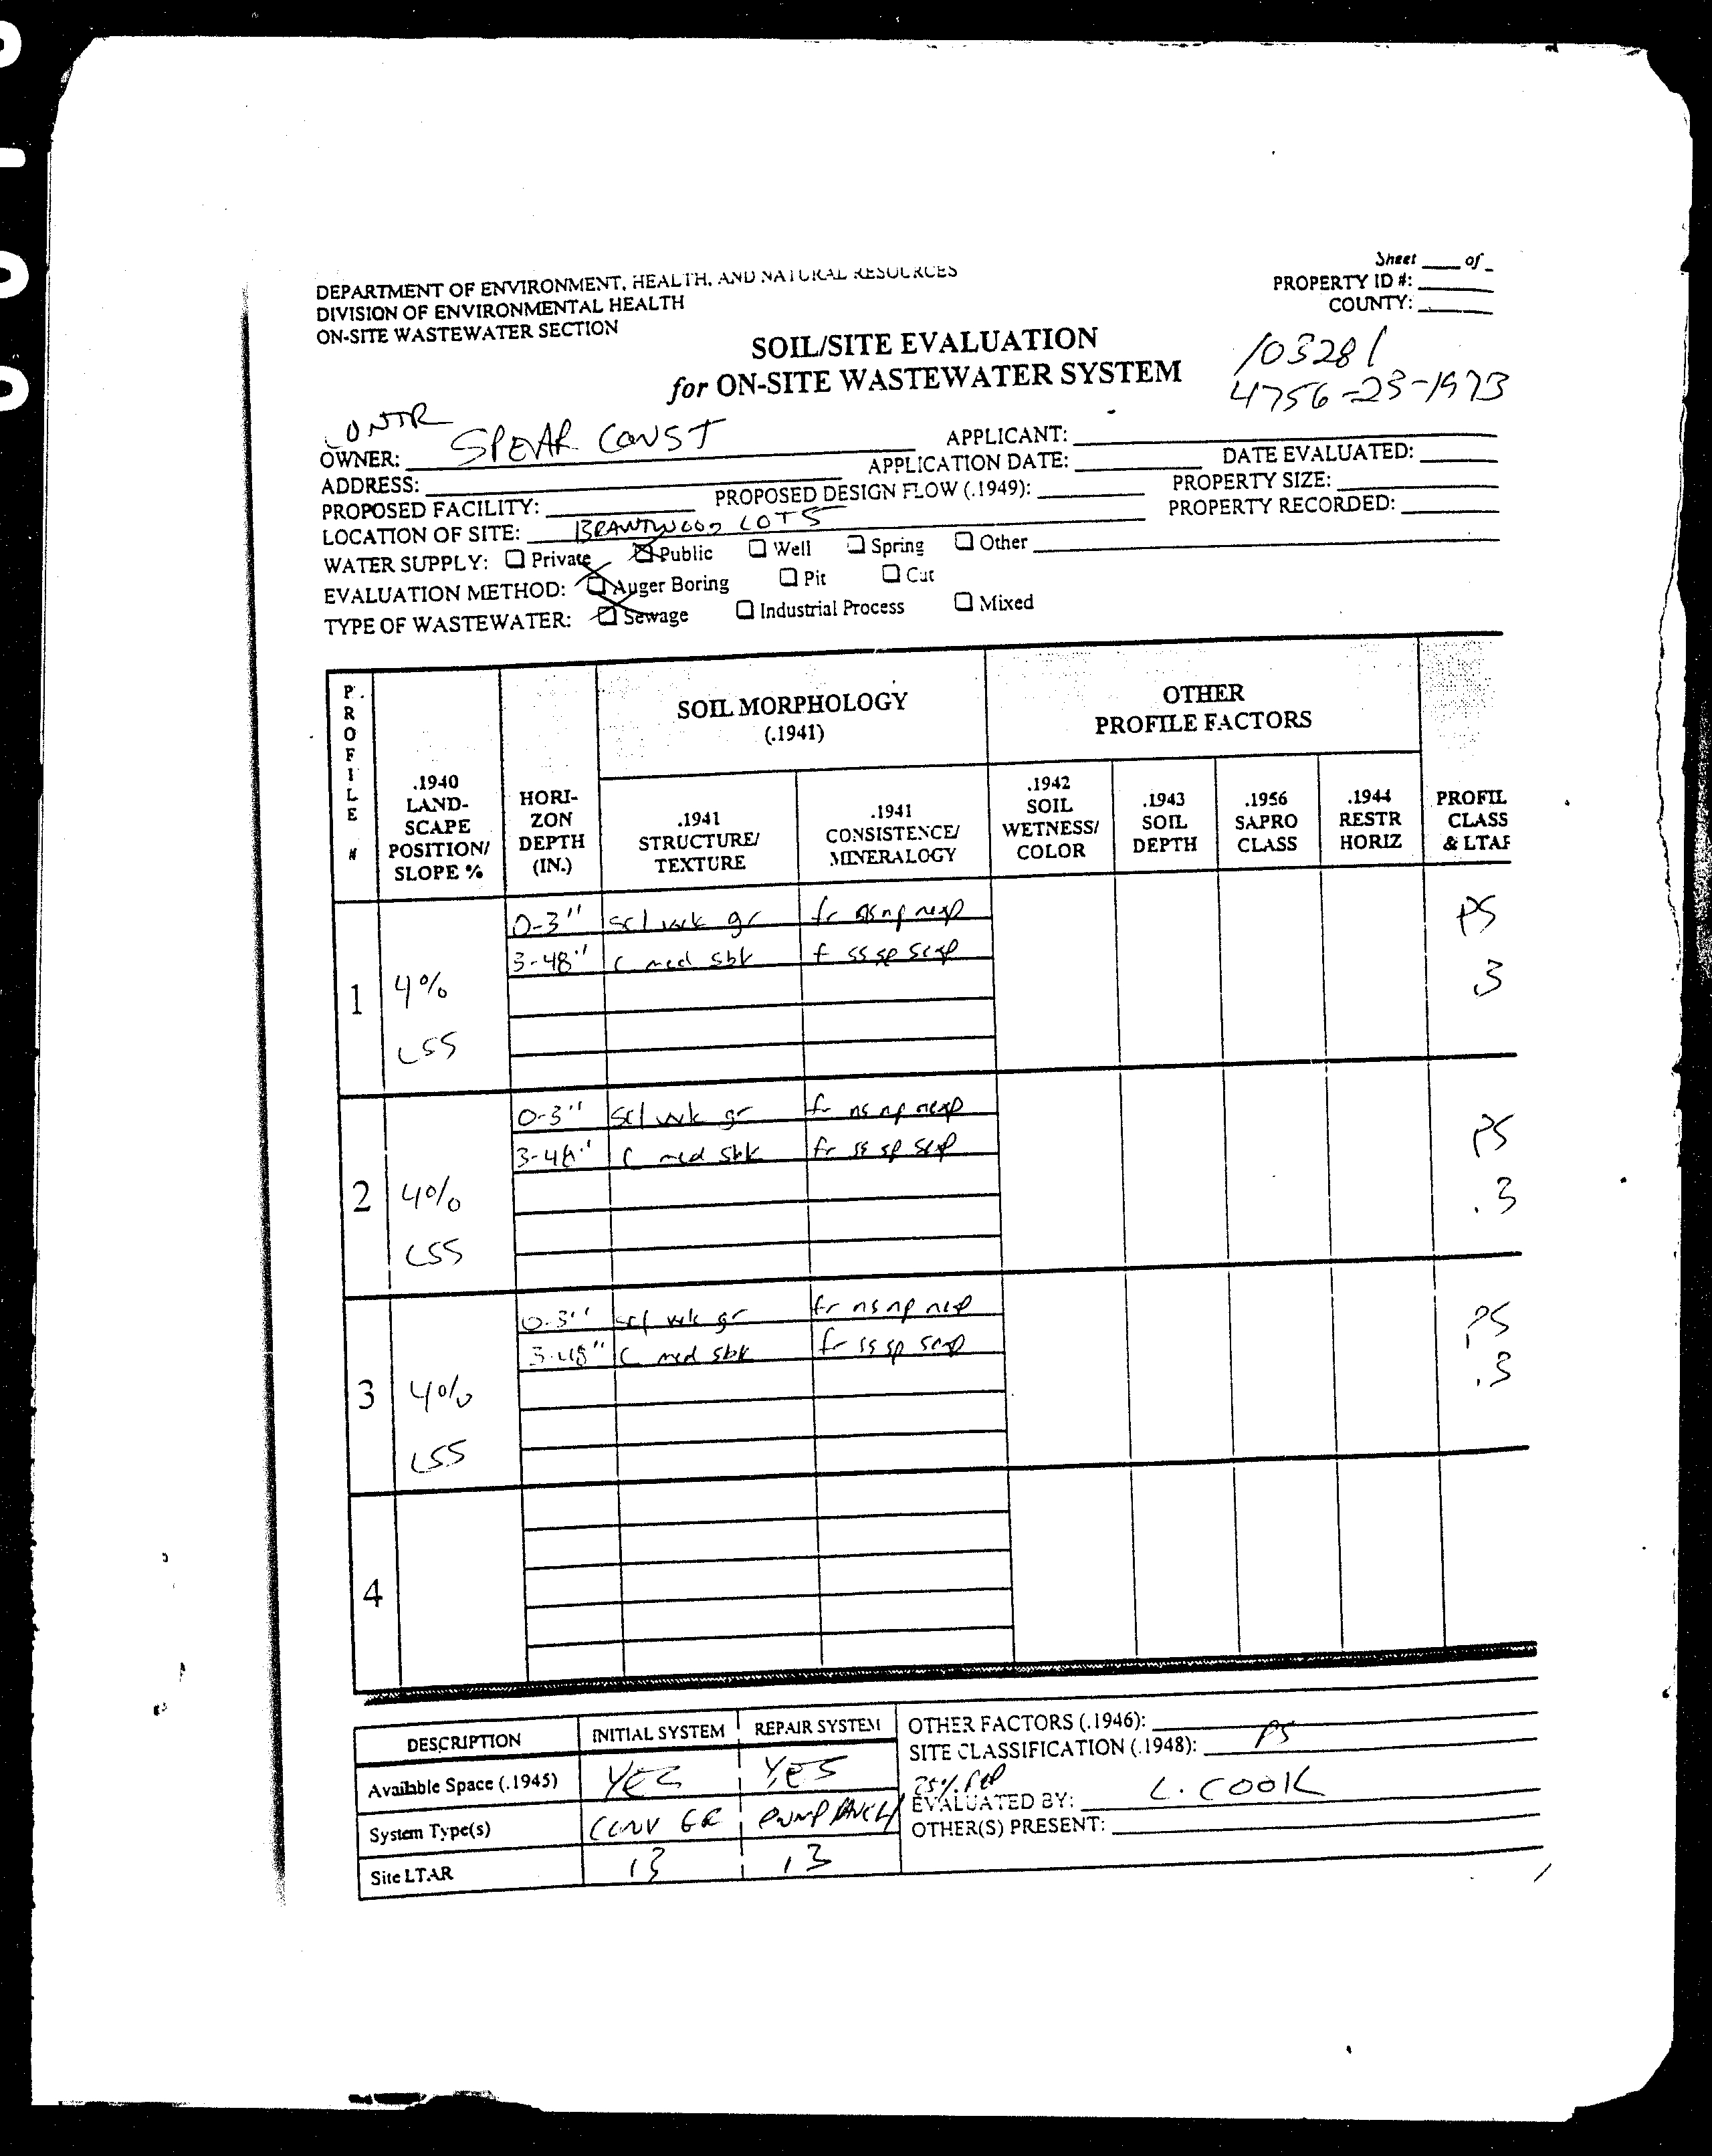 Sheet ____ of _
DEPARTMENT OF ENVIRONMENT, HEALTH, AND NATURAL RESOURCES
PROPERTY ID #: ______
DIVISION OF ENVIRONMENTAL HEALTH
COUNTY: ______
ON-SITE WASTEWATER SECTION
SOIL/SITE EVALUATION
for ON-SITE WASTEWATER SYSTEM
103281
4756-23-1973
CONTR
OWNER: SPEAR CONST APPLICANT:
ADDRESS: APPLICATION DATE: DATE EVALUATED:
PROPOSED FACILITY: PROPOSED DESIGN FLOW (.1949): PROPERTY SIZE:
LOCATION OF SITE: BRANTWOOD LOTS PROPERTY RECORDED:
WATER SUPPLY: ☐ Private ☒ Public ☐ Well ☐ Spring ☐ Other
EVALUATION METHOD: ☒ Auger Boring ☐ Pit ☐ Cut
TYPE OF WASTEWATER: ☒ Sewage ☐ Industrial Process ☐ Mixed
PROFILE #
.1940 LAND-SCAPE POSITION/ SLOPE %
HORI-ZON DEPTH (IN.)
SOIL MORPHOLOGY (.1941)
.1941 STRUCTURE/ TEXTURE
.1941 CONSISTENCE/ MINERALOGY
OTHER PROFILE FACTORS
.1942 SOIL WETNESS/ COLOR
.1943 SOIL DEPTH
.1956 SAPRO CLASS
.1944 RESTR HORIZ
PROFIL CLASS & LTAR
1 4% LSS
0-3" scl wk gr fr ns np nexp
3-48" c med sbk f ss sp sexp
PS .3
2 4% LSS
0-3" scl wk gr fr ns np nexp
3-48" c med sbk fr ss sp sexp
PS .3
3 4% LSS
0-3" scl wk gr fr ns np nexp
3-48" c med sbk fr ss sp sexp
PS .3
4
DESCRIPTION INITIAL SYSTEM REPAIR SYSTEM
Available Space (.1945) YES YES
System Type(s) CONV GR PUMP
Site LTAR .3 .3
OTHER FACTORS (.1946):
SITE CLASSIFICATION (.1948): PS
25%
EVALUATED BY: L. COOK
OTHER(S) PRESENT: